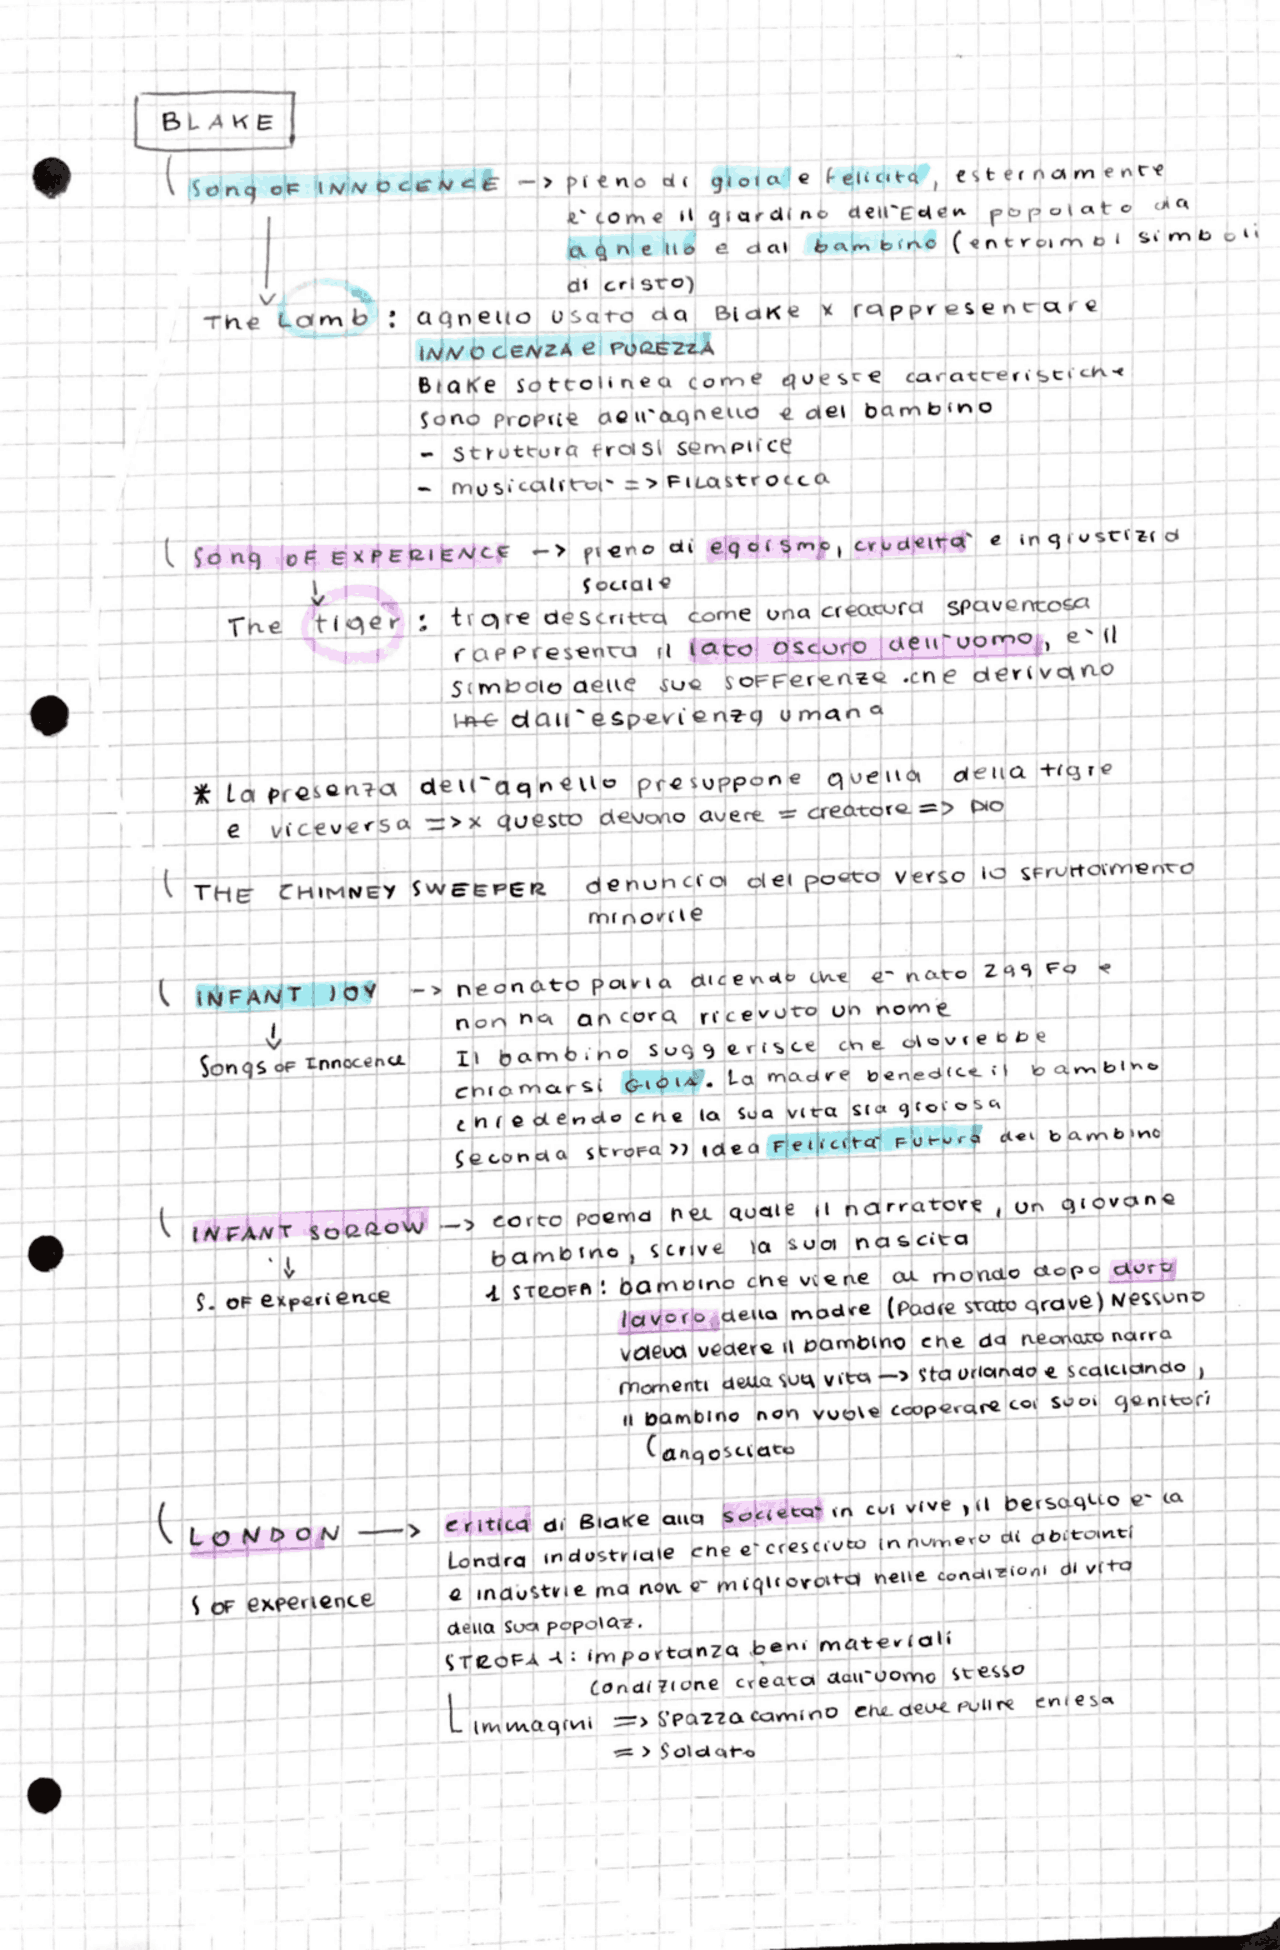 BLAKE
Song OF INNOCENCE -> pieno di gioia e felicità, esternamente
è come il giardino dell'Eden popolato da
agnello e dal bambino (entroimbi simboli
di cristo)
The Lamb : agnello usato da Blake x rappresentare
INNOCENZA e PUREZZA
Blake sottolinea come queste caratteristiche
sono proprie dell'agnello e del bambino
- struttura frasi semplice
- musicalità => Filastrocca
Song OF EXPERIENCE -> pieno di egoismo, crudeltà e ingiustizia
sociale
The tiger : tigre descritta come una creatura spaventosa
rappresenta il lato oscuro dell'uomo, è il
simbolo delle sue sofferenze che derivano
dall'esperienza umana
* La presenza dell'agnello presuppone quella della tigre
e viceversa => x questo devono avere = creatore => DIO
THE CHIMNEY SWEEPER denuncia del poeta verso lo sfruttamento
minorile
INFANT JOY -> neonato parla dicendo che è nato 2gg Fa e
non ha ancora ricevuto un nome
Il bambino suggerisce che dovrebbe
Songs of Innocence
chiamarsi GIOIA. La madre benedice il bambino
chiedendo che la sua vita sia gioiosa
Seconda strofa >> idea Felicità Futura del bambino
INFANT SORROW -> corto poema nel quale il narratore, un giovane
bambino, scrive la sua nascita
S. OF experience
1 STROFA : bambino che viene al mondo dopo duro
lavoro della madre (Padre stato grave) Nessuno
voleva vedere il bambino che da neonato narra
momenti della sua vita -> sta urlando e scalciando,
il bambino non vuole cooperare coi suoi genitori
(angosciato
LONDON -> critica di Blake alla società in cui vive, il bersaglio è la
Londra industriale che è cresciuta in numero di abitanti
e industrie ma non è migliorata nelle condizioni di vita
S OF experience
della sua popolaz.
STROFA 1 : importanza beni materiali
condizione creata dall'uomo stesso
immagini => Spazzacamino che deve pulire chiesa
=> Soldato